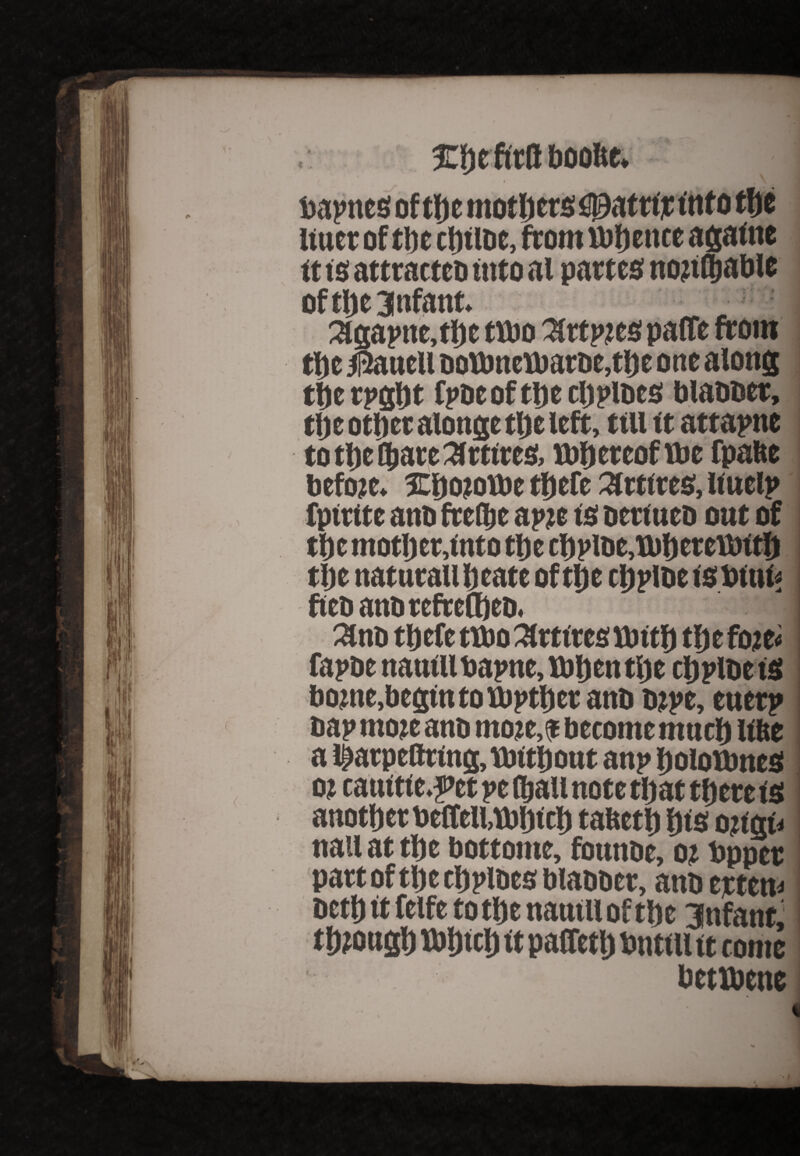 The first booke.
vaynes of the mothers Matrix into the
liuer of the childe, from whence againe
it is attracted into al partes norishable
of the Infant.
Agayne, the two Artyres passe from
the Nauell downewarde, the one along
the ryght syde of the chyldes bladder,
the other alonge the left, till it attayne
to the share Artires, whereof we spake
before. Thorowe these Artires, liuely
spirite and freshe ayre is deriued out of
the mother, into the chylde, wherewith
the naturall heate of the chylde is viui-
fied and refreshed.
And these two Artires with the fore-
sayde nauill vayne, when the chylde is
borne, begin to wyther and drye, euery
day more and more, & become much like
a Harpestring, without any holownes
or cauitie. Yet ye shall note that there is
another vessell, which taketh his origi-
nall at the bottome, founde, or vpper
part of the chyldes bladder, and exten-
deth it selfe to the nauill of the Infant,
through which it passeth vntill it come
betwene